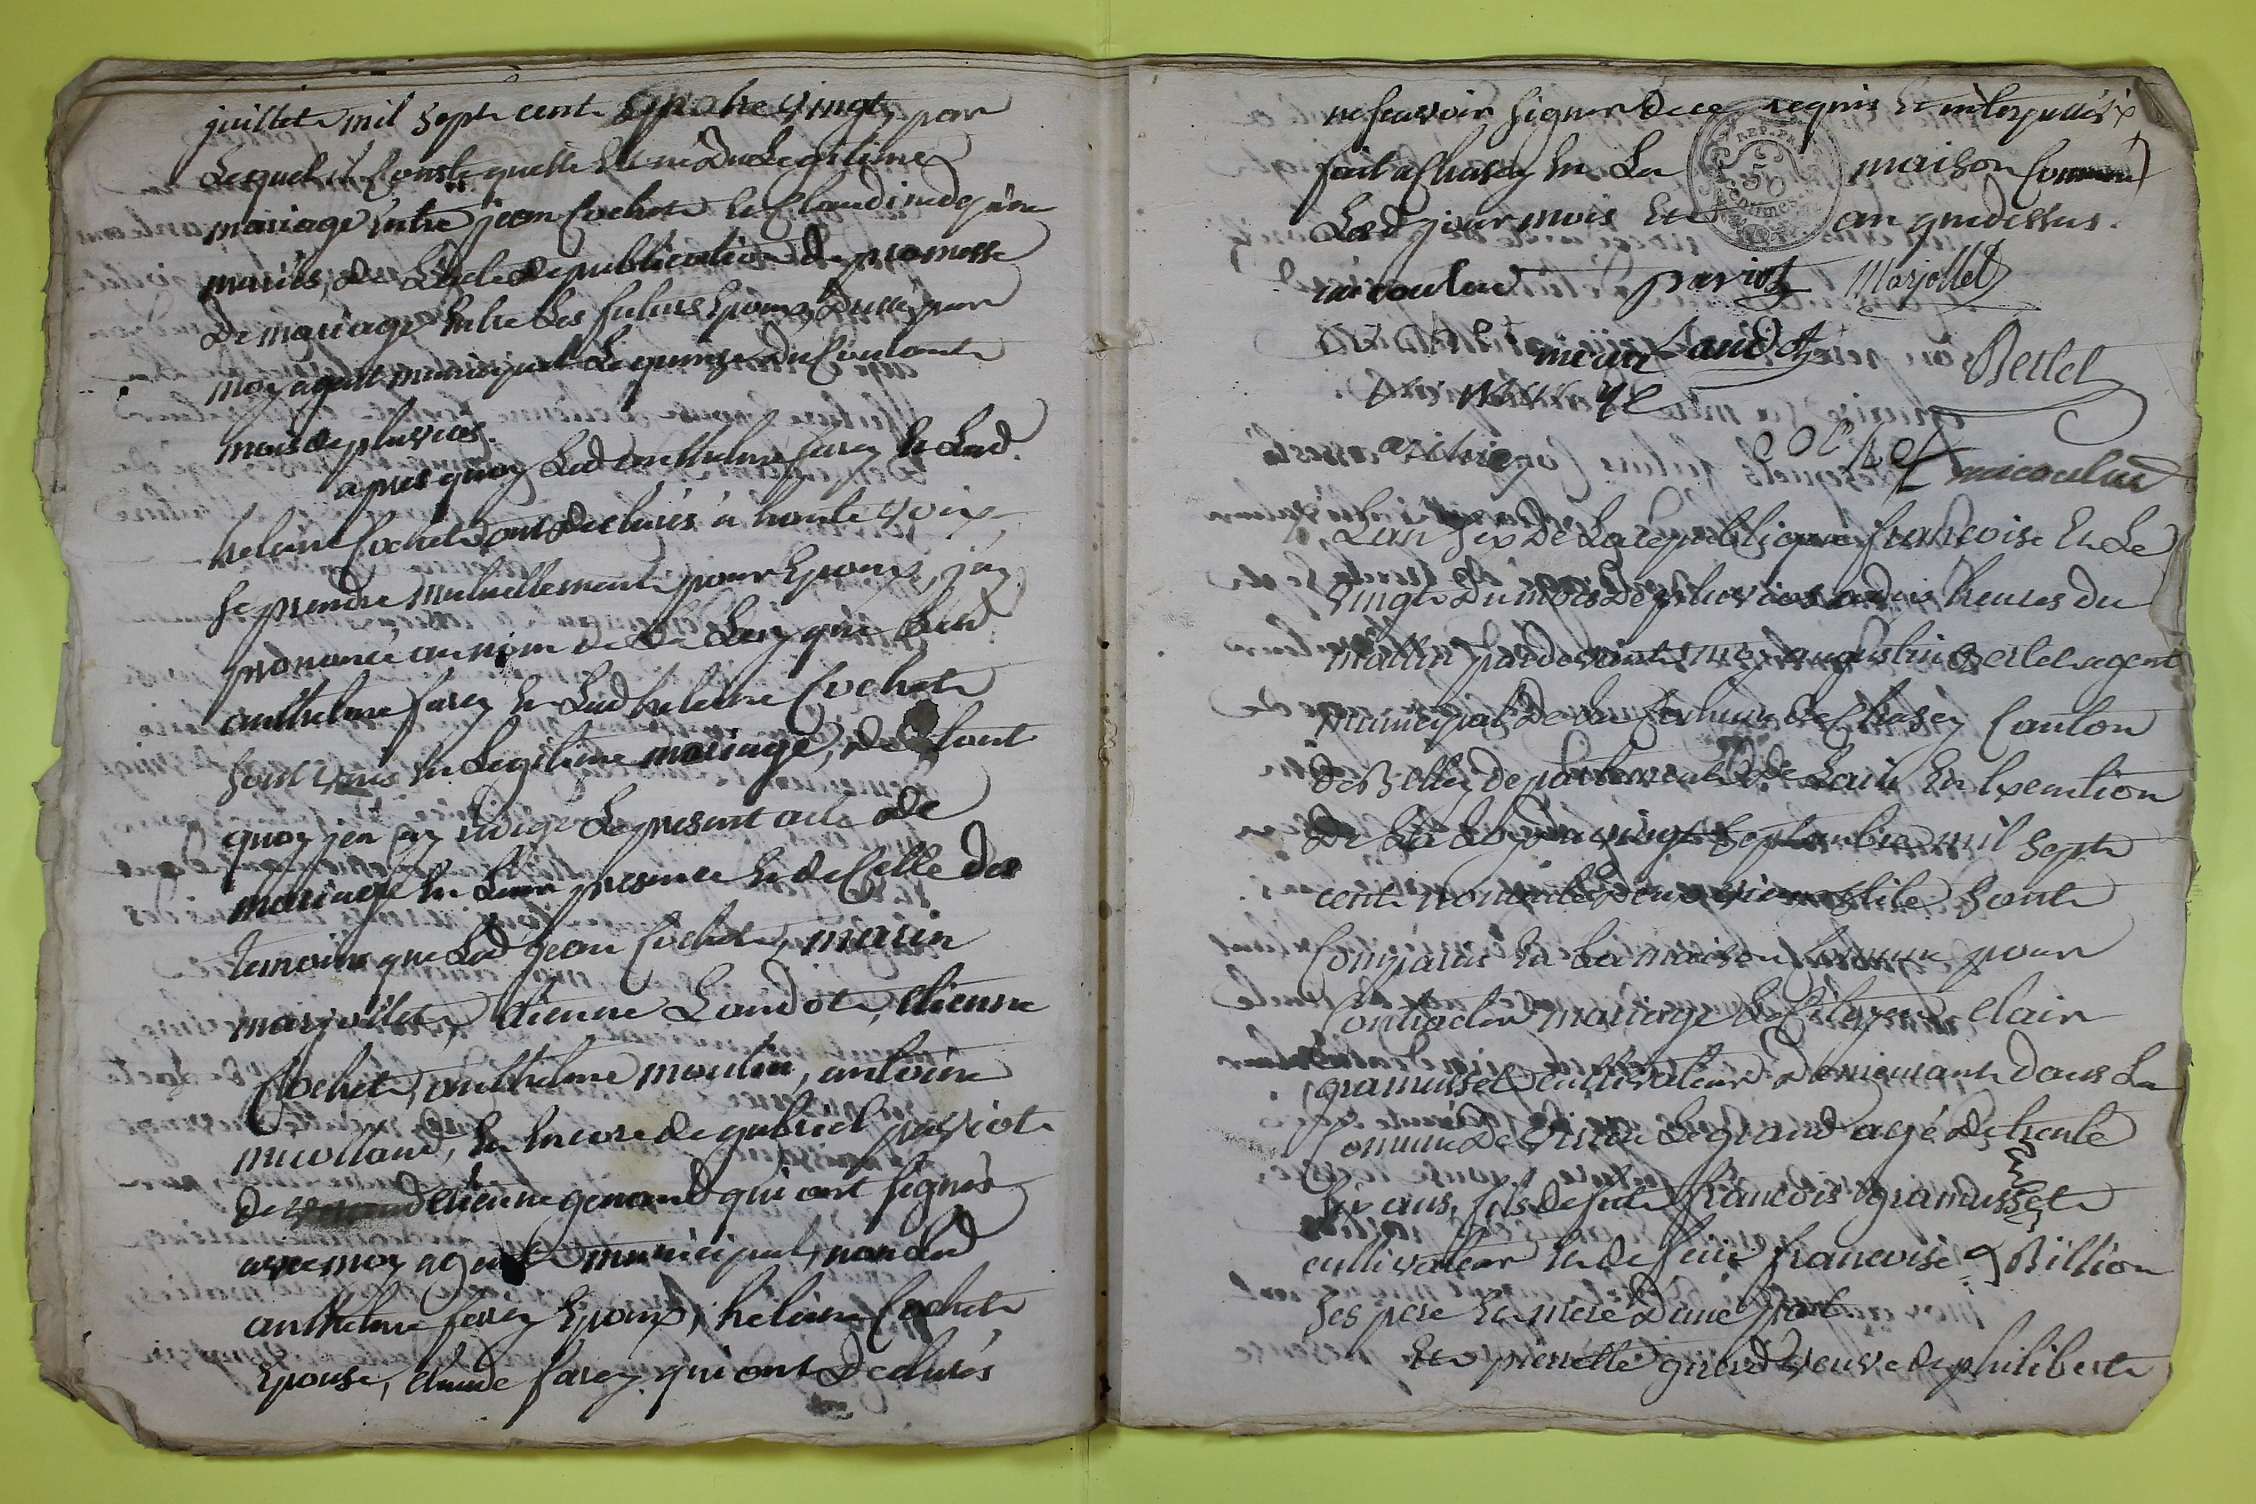 juillet mil sept cent quatre vingt, par
Lequel il Conste quelle Et née du Legitime
mariage Entre jean Cochet Et Claudine
mariés, de L'acte de publication de promesse
De mariage Entre Les futurs Epoux, Dressé par
moy agent municipal Le quinze du Courant
mois de pluviose.
apres quoy Led anthelme farcy Et Lad.
helaine Cochet ont declarés à haute voix
se prendre mutuellement pour Epoux, j'ay
prononcé au nom de La Loy que Led
anthelme farcy Et Lad helaine Cochet
sont unis En Legitime mariage, de tout
quoy jen ay redigé Le present acte de
mariage En Leur presence Et de Celle des
temoins que Led jean Cochet, marin
marjollet, etienne Landot, etienne
Cochet, anthelme moulin, antoine
micolland, Et Encore de gabriel paviot
De etienne genand qui ont signés
avec moy agent municipal, non Led
anthelme farcy Epoux, helaine Cochet
Epouse, Claude farcy qui ont Declarés
ne scavoir signer de ce requis Et interpellés
fait a Chasey En La maison Commune
Les d jour mois Et an que dessus.
paviot Marjollet
Landot
Berlet
cochet micoulas
REP. FRA.
50
Centimes.
L'an six De La republique francoise Et Le
vingt Du mois De pluviose a dix heures du
mattin pardevant moy augustin Berlet agent
municipal De La Commune De Chasey Canton
De Belley departement De Lain En Execution
De La Loy du vingt septembre mil sept
cent nonante Deux vieux stile sont
Comparus En La maison Comune pour
Contracter mariage Le Citoyen clair
gramusset cultivateur Demeurant dans La
Comune De Virieu Le grand agé De trente
six ans, fils de feu francois gramusset
cultivateur Et de feue francoise Billion
ses pere Et mere D'une part
Et pierrette guerd veuve de philibert